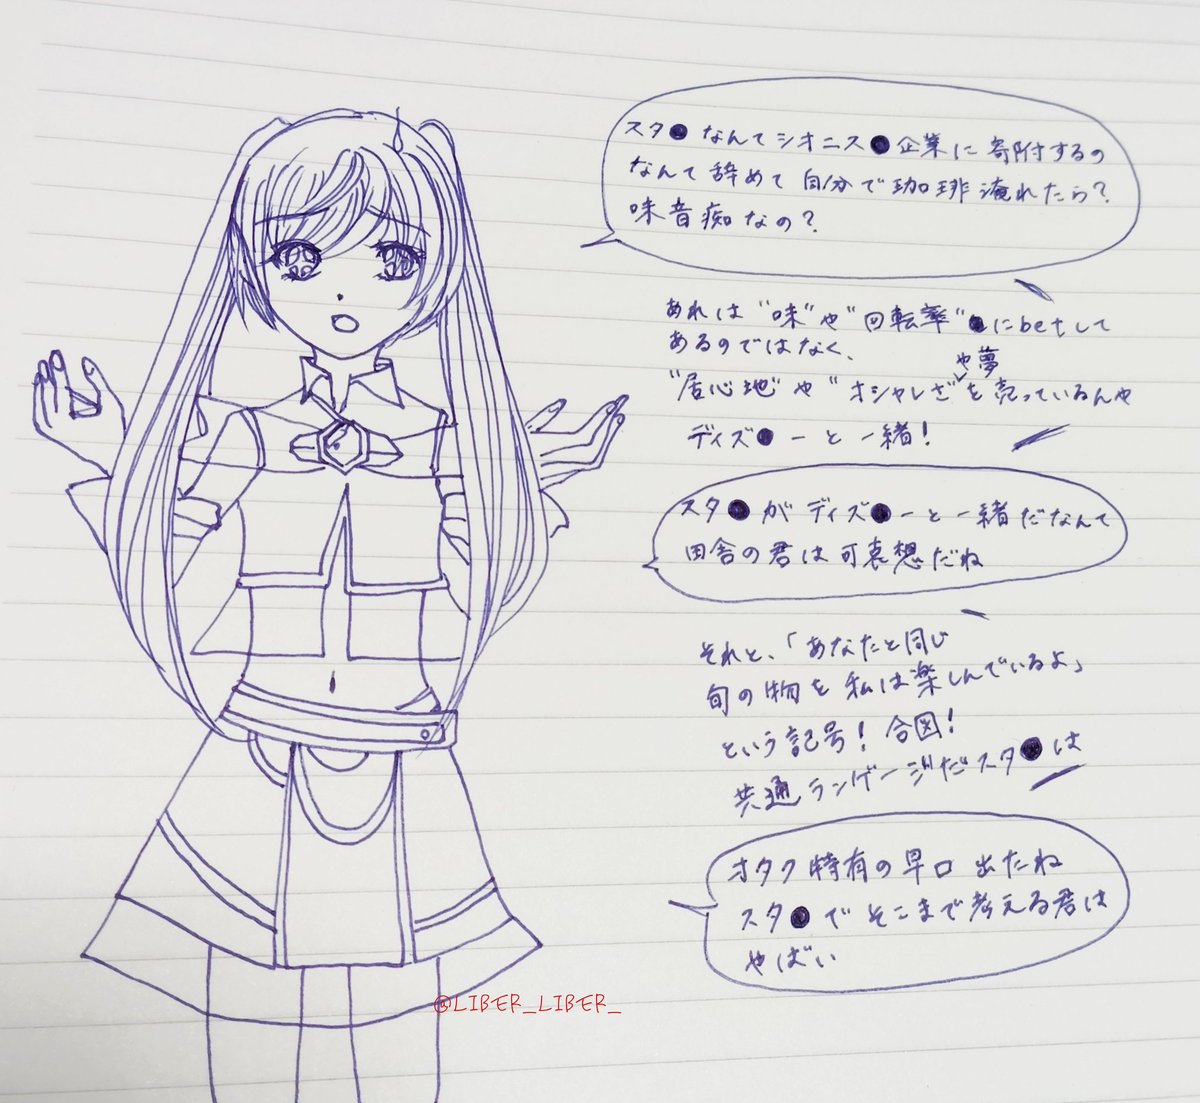 スタ●なんてシオニス●企業に寄附するの
なんて辞めて自分で珈琲淹れたら?
味音痴なの?
あれは"味"や"回転率"●にbetして
あるのではなく、
や夢
"居心地"や"オシャレさ"を売っているんや
ディズ●ーと一緒!
スタ●がディズ●ーと一緒だなんて
田舎の君は可哀想だね
それと、「あなたと同じ
旬の物を私は楽しんでいるよ」
という記号!合図!
共通ランゲージだスタ●は
オタク特有の早口出たね
スタ●でそこまで考える君は
やばい
@LIBER_LIBER_